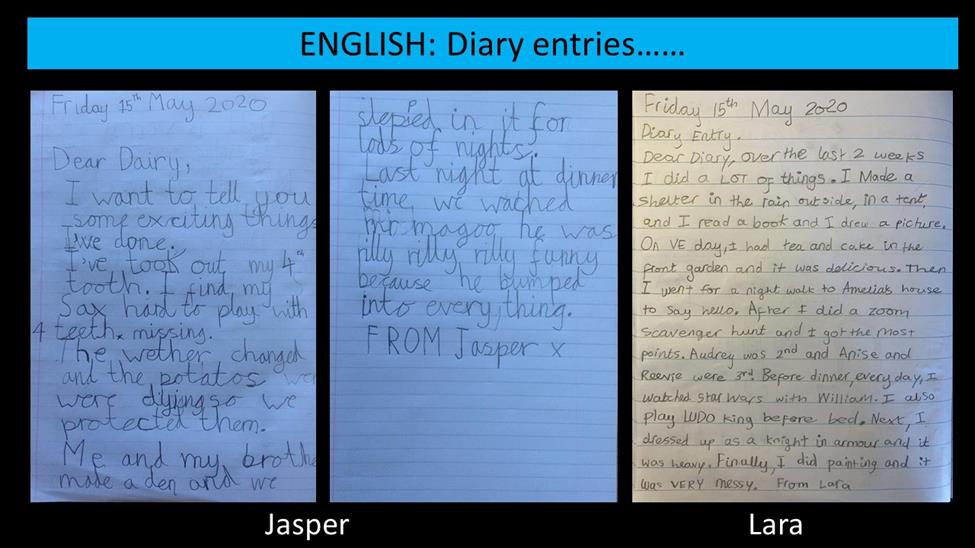 ENGLISH: Diary entries……
Friday 15th May 2020
Dear Dairy,
I want to tell you
some exciting things
I've done.
I've took out my 4th
tooth. I find my
Sax hard to play with
4 teeth. missing.
The wether changed
and the potatos we
were dijing so we
protected them.
Me and my brothe
made a den and we
sleped in it for
lods of nights.
Last night at dinner
time, we wached
mr magoo he was
rilly rilly rilly funny
because he bumped
into everything.
FROM Jasper x
Friday 15th May 2020
Diary Entry.
Dear Diary, over the last 2 weeks
I did a LOT of things. I Made a
shelter in the rain outside, in a tent,
and I read a book and I drew a picture.
On VE day, I had tea and cake in the
front garden and it was delicious. Then
I went for a night walk to Amelia's house
to say hello. After I did a zoom
scavenger hunt and I got the most
points. Audrey was 2nd and Anise and
Reevie were 3rd. Before dinner, every day, I
watched star wars with William. I also
play LUDO king before bed. Next, I
dressed up as a knight in armour and it
was heavy. Finally, I did painting and it
was VERY messy. From Lara
Jasper
Lara